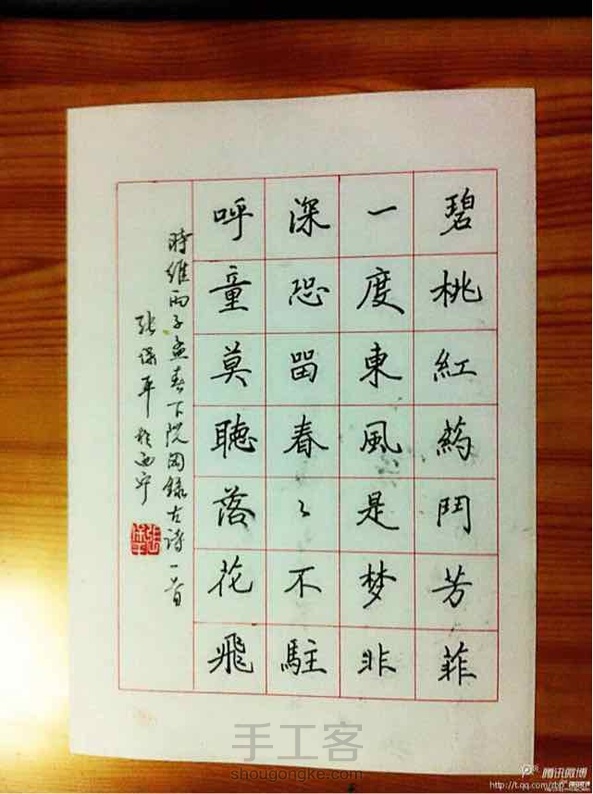 碧桃紅药鬥芳菲
一度東風是梦非
深恐留春〻不駐
呼童莫聽落花飛
時維丙子孟春下浣閑錄古诗一首
张保平於西宁
手工客
shougongke.com
腾讯微博